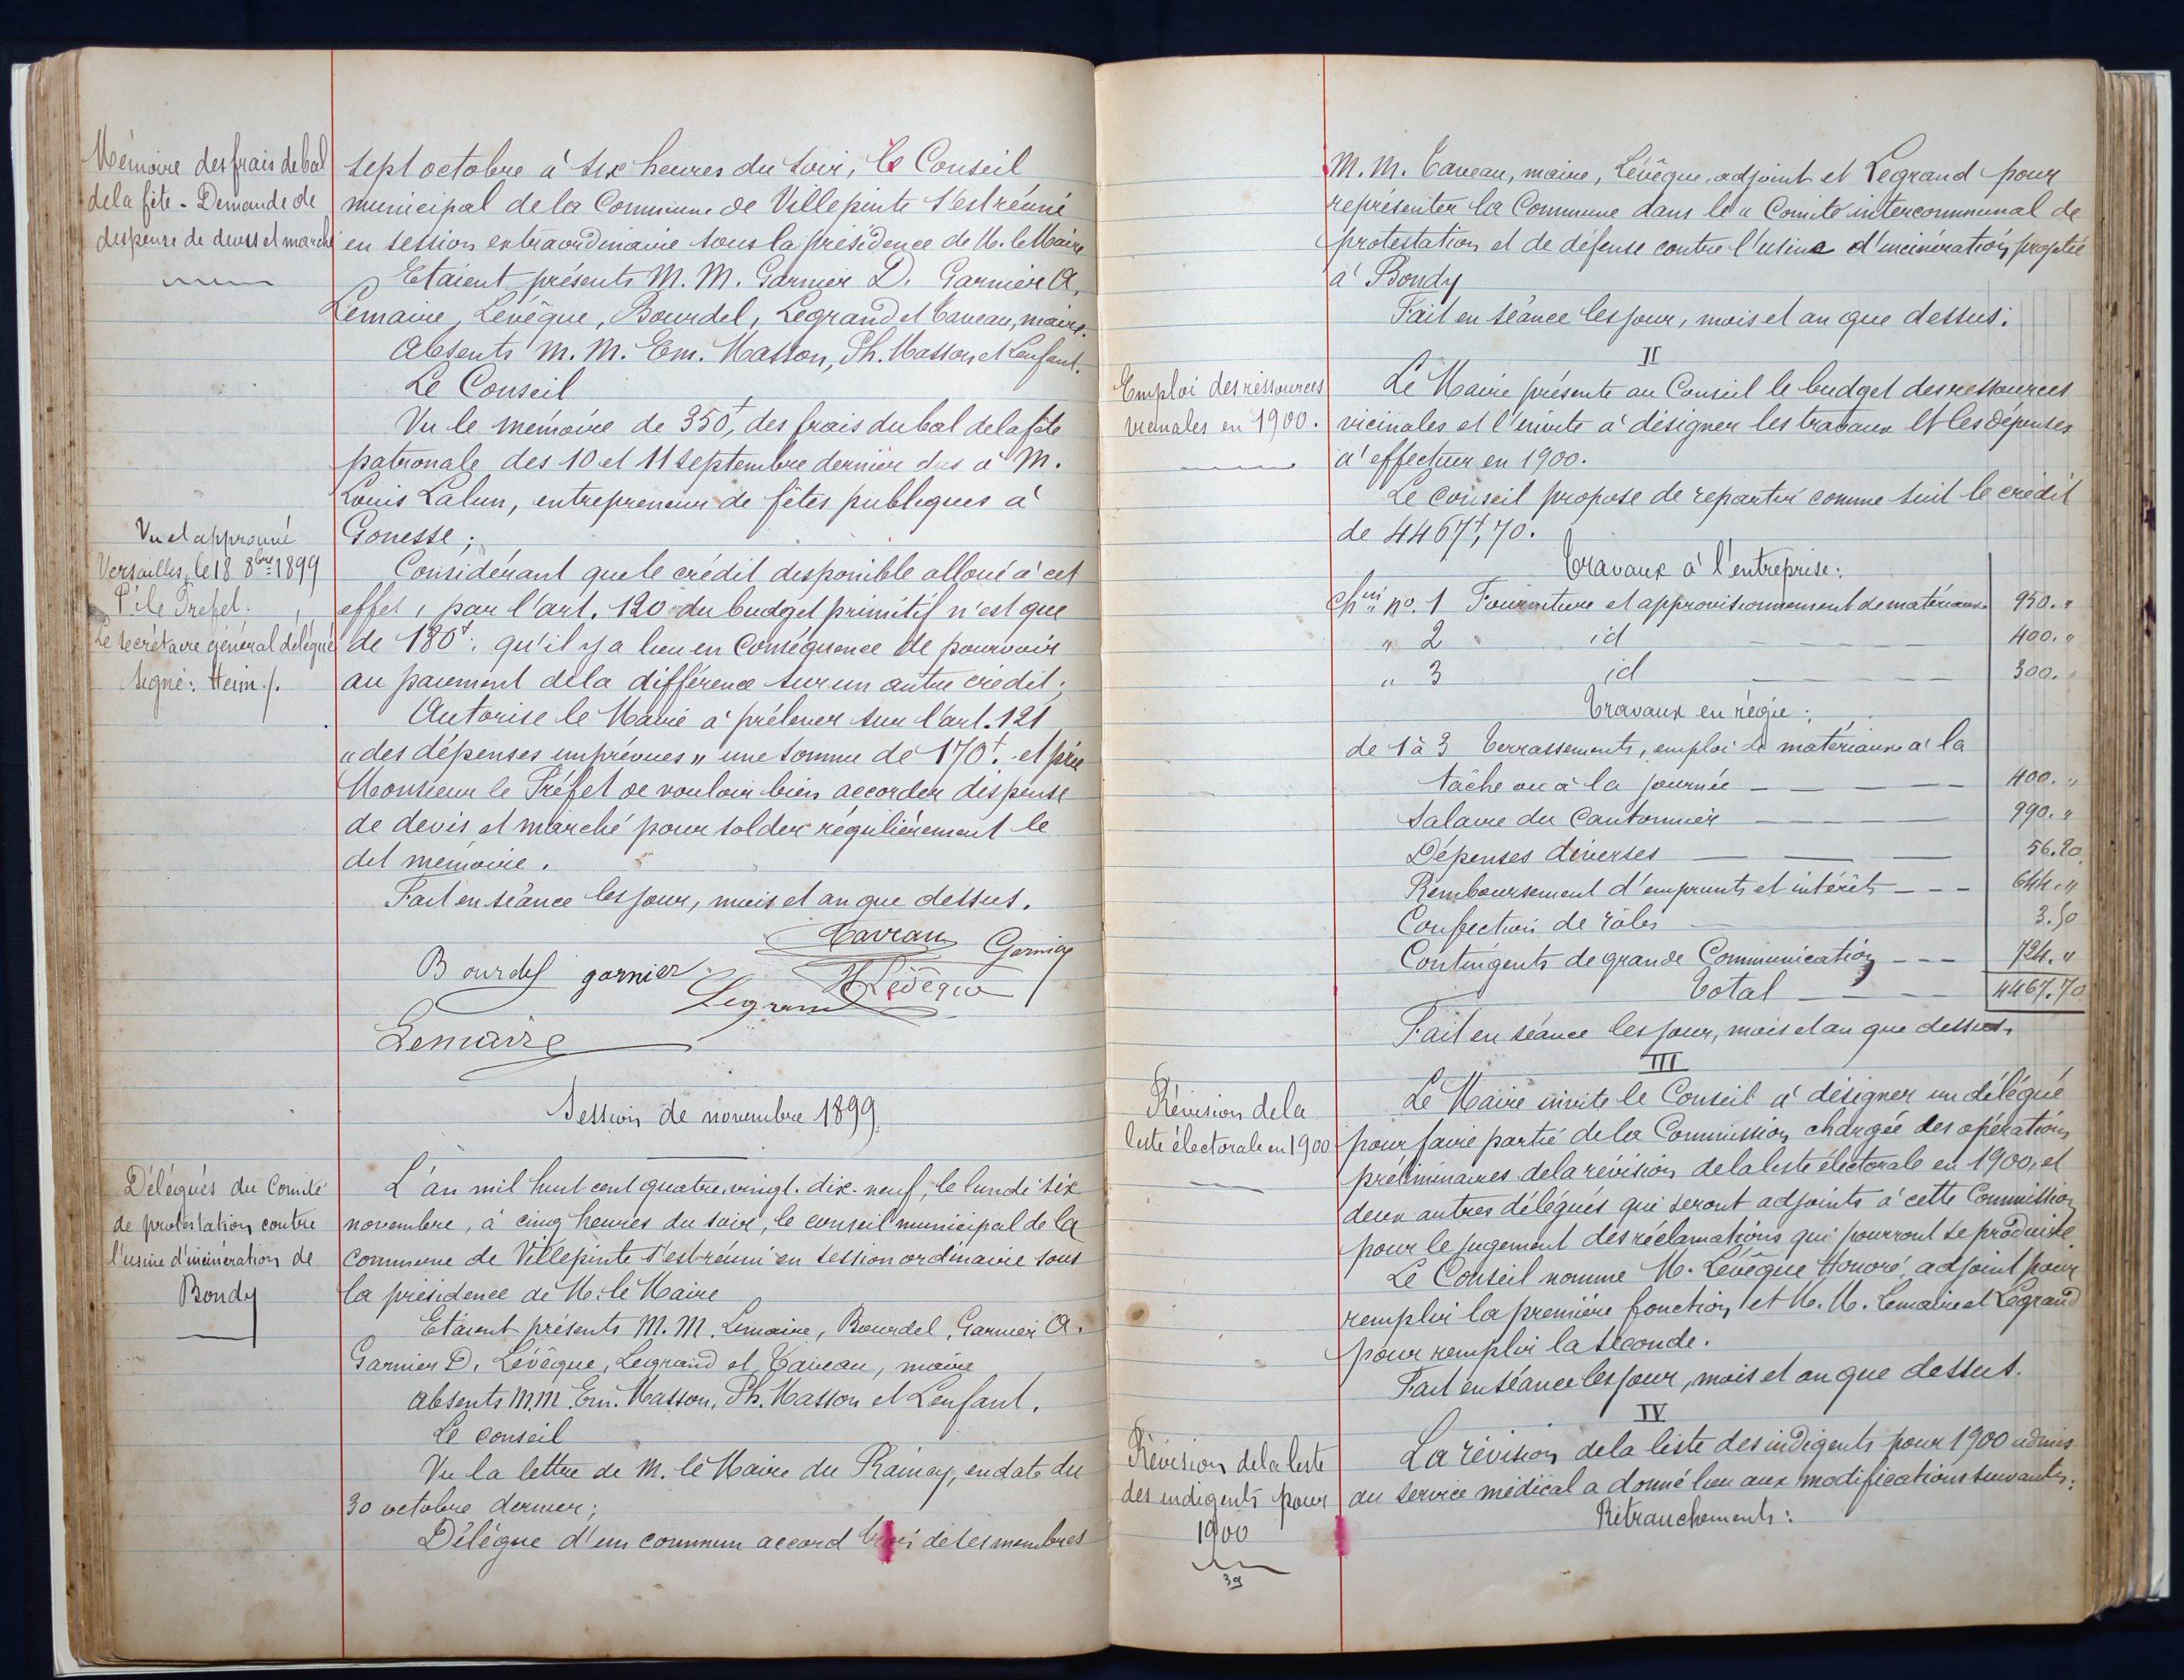 Mémoire des frais de bal
de la fête - Demande de
dispense de devis et marché
sept octobre à six heures du soir, le Conseil
municipal de la Commune de Villepinte s'est réuni
en session extraordinaire sous la présidence de M. le Maire
Etaient présents M. M. Garnier D. Garnier A.
Lemaire, Lévêque, Bourdel, Legrand et Taveau, maire.
Absents M. M. Em. Masson, Ph. Masson et Lenfant.
Le Conseil
Vu le mémoire de 350f, des frais du bal de la fête
patronale des 10 et 11 septembre dernier dus à M.
Louis Lalun, entrepreneur de fêtes publiques à
Gonesse ;
Considérant que le crédit disponible alloué à cet
effet, par l'art. 120 du budget primitif n'est que
de 180f: qu'il y a lieu en conséquence de pourvoir
au paiement de la différence sur un autre crédit ;
Autorise le Maire à prélever sur l'art. 121
"des dépenses imprévues" une somme de 170f. et prie
Monsieur le Préfet de vouloir bien accorder dispense
de devis et marché pour solder régulièrement le
dit mémoire.
Fait en séance les jour, mois et an que dessus.
Vu et approuvé
Versailles, le 18 8bre 1899
P. le Préfet.
Le secrétaire général délégué
Signé: Heim./.
Taveau Garnier
Bourdel garnier H Lévêque
Legrand
Lemaire
Session de novembre 1899
Délégués du Comité
de protestation contre
l'usine d'incinération de
Bondy
L'an mil huit cent quatre-vingt-dix-neuf, le lundi six
novembre, à cinq heures du soir, le conseil municipal de la
commune de Villepinte s'est réuni en session ordinaire sous
la présidence de M. le Maire
Etaient présents M. M. Lemaire, Bourdel, Garnier A.
Garnier D. Lévêque, Legrand et Taveau, maire
absents M.M. Em. Masson, Ph. Masson et Lenfant.
Le conseil
Vu la lettre de M. le Maire du Raincy, en date du
30 octobre dernier ;
Délègue d'un commun accord trois de ses membres
M. M. Taveau, maire, Lévêque, adjoint et Legrand pour
représenter la Commune dans le "Comité intercommunal de
protestation et de défense contre l'usine d'incinération projetée
à Bondy
Fait en séance les jour, mois et an que dessus.
II
Emploi des ressources
vicinales en 1900.
Le Maire présente au Conseil le budget des ressources
vicinales et l'invite à désigner les travaux et les dépenses
à effectuer en 1900.
Le conseil propose de répartir comme suit le crédit
de 4467f,70.
Travaux à l'entreprise:
Chin no. 1 Fourniture et approvisionnement de matériaux 950. "
" 2 id 400. "
" 3 id 300. "
Travaux en régie :
de 1 à 3 terrassements, emploi de matériaux à la
tâche ou à la journée 400. "
Salaire du Cantonnier 990. "
Dépenses diverses 56.20
Remboursement d'emprunts et intérêts 644. "
Confection de rôles 3.50
Contingents de grande Communication 724. "
Total 4467.70
Fait en séance les jour, mois et an que dessus.
III
Révision de la
liste électorale en 1900
Le Maire invite le Conseil à désigner un délégué
pour faire partie de la Commission chargée des opérations
préliminaires de la révision de la liste électorale en 1900, et
deux autres délégués qui seront adjoints à cette Commission
pour le jugement des réclamations qui pourront se produire
Le Conseil nomme M. Lévêque Honoré, adjoint pour
remplir la première fonction et M. M. Lemaire et Legrand
pour remplir la seconde.
Fait en séance les jour, mois et an que dessus.
IV
Révision de la liste
des indigents pour
1900
39
La révision de la liste des indigents pour 1900 admis
au service médical a donné lieu aux modifications suivantes:
Retranchements :